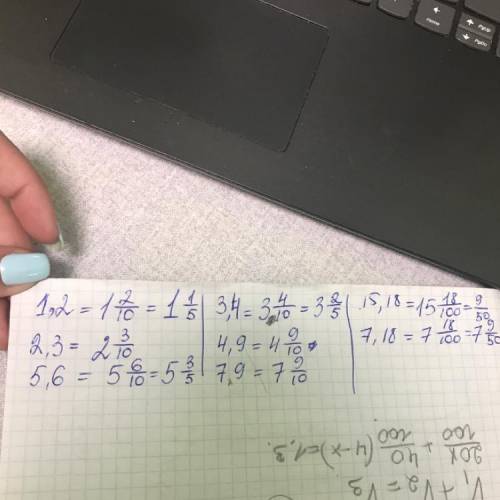 1,2 = 1 2/10 = 1 1/5
2,3 = 2 3/10
5,6 = 5 6/10 = 5 3/5
3,4 = 3 4/10 = 3 2/5
4,9 = 4 9/10
7,9 = 7 9/10
15,18 = 15 18/100 = 9/50
7,18 = 7 18/100 = 7 9/50
V₁ + V₂ = V₃
20x/100 + 40/100 (4-x) = 1,3.
Home
PgUp
PgDn